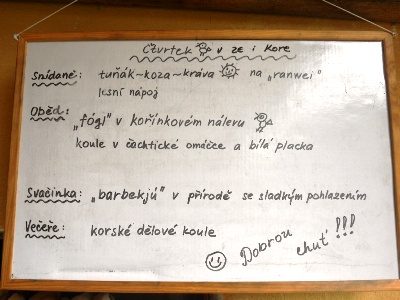 Čtvrtek v ze i kore
Snídaně: tuňák~koza~kráva na „ranwei"
lesní nápoj
Oběd: „fógl" v kořínkovém nálevu
koule v čachtické omáčce a bílá placka
Svačinka: „barbekjú" v přírodě se sladkým pohlazením
Večeře: korské dělové koule
Dobrou chuť !!!